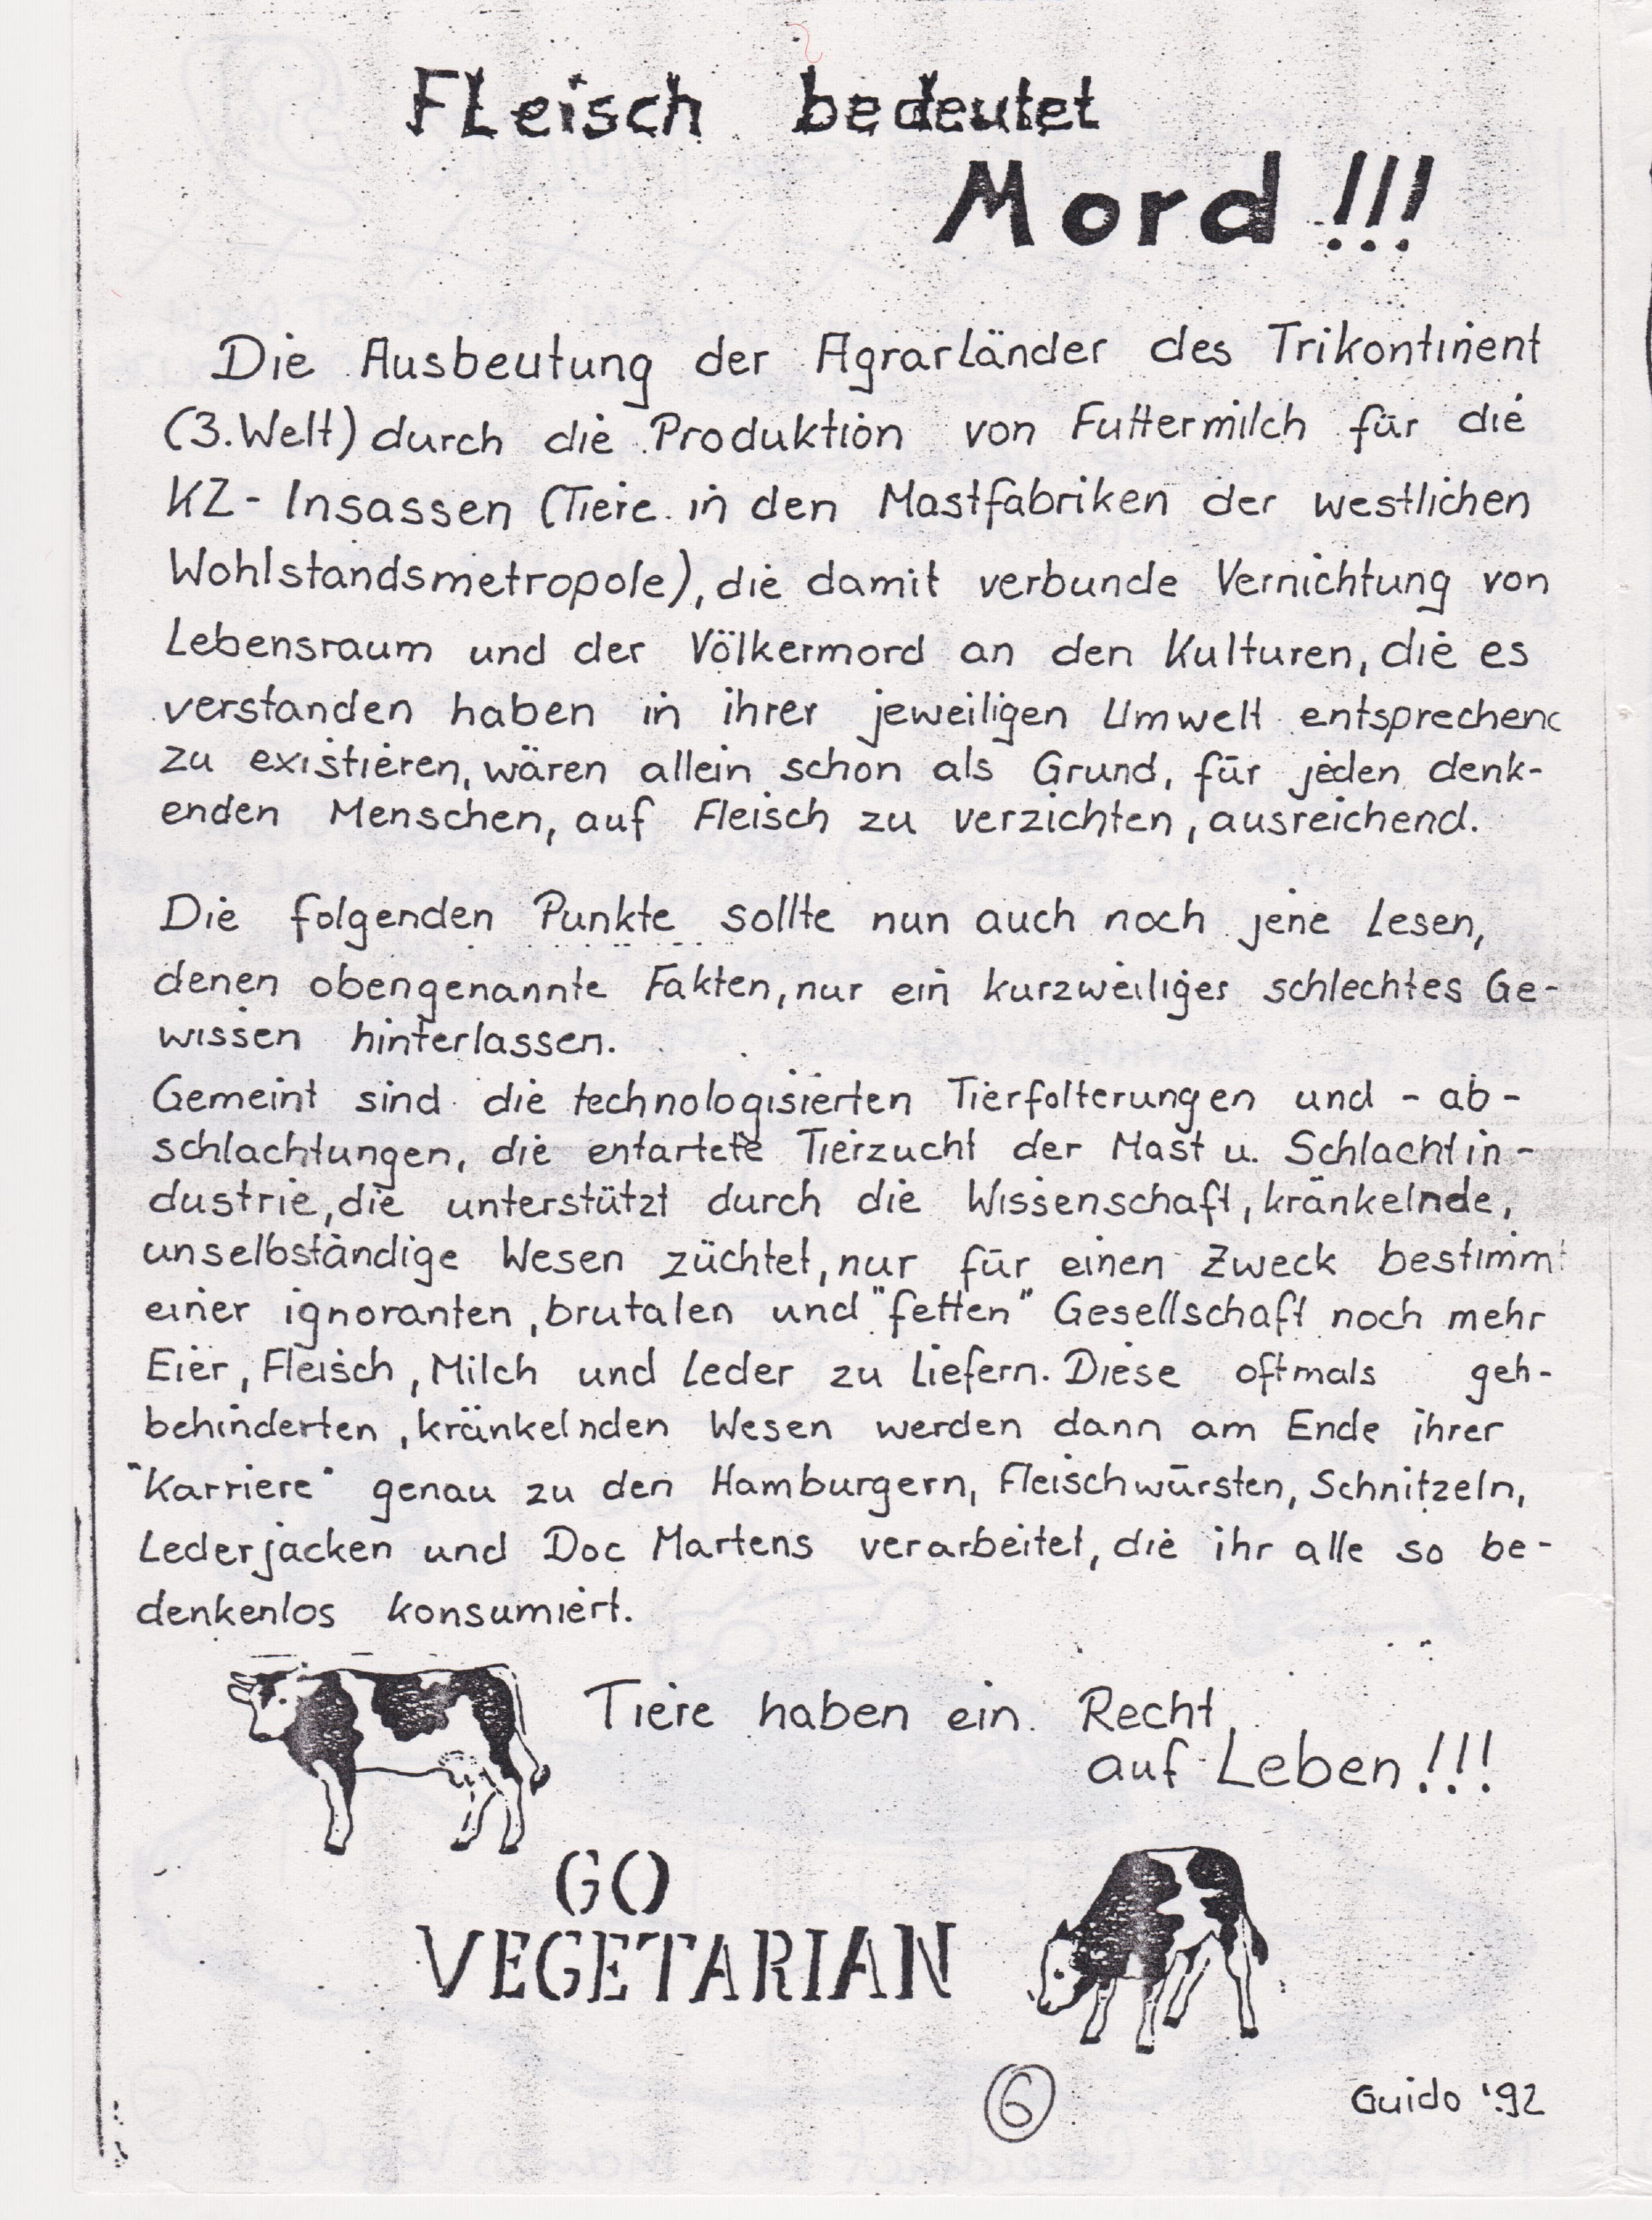 FLeisch bedeutet
Mord!!!
Die Ausbeutung der Agrarländer des Trikontinent
(3.Welt) durch die Produktion von Futtermilch für die
KZ-Insassen (Tiere in den Mastfabriken der westlichen
Wohlstandsmetropole), die damit verbunde Vernichtung von
Lebensraum und der Völkermord an den Kulturen, die es
verstanden haben in ihrer jeweiligen Umwelt entsprechend
zu existieren, wären allein schon als Grund, für jeden denk-
enden Menschen, auf Fleisch zu verzichten, ausreichend.
Die folgenden Punkte sollte nun auch noch jene Lesen,
denen obengenannte Fakten, nur ein kurzweiliges schlechtes Ge-
wissen hinterlassen.
Gemeint sind die technologisierten Tierfolterungen und -ab-
schlachtungen, die entartete Tierzucht der Mast u. Schlachtin-
dustrie, die unterstützt durch die Wissenschaft, kränkelnde,
unselbständige Wesen züchtet, nur für einen Zweck bestimmt
einer ignoranten, brutalen und "fetten" Gesellschaft noch mehr
Eier, Fleisch, Milch und Leder zu liefern. Diese oftmals geh-
behinderten, kränkelnden Wesen werden dann am Ende ihrer
"Karriere" genau zu den Hamburgern, Fleischwürsten, Schnitzeln,
Lederjacken und Doc Martens verarbeitet, die ihr alle so be-
denkenlos konsumiert.
Tiere haben ein Recht
auf Leben!!!
GO
VEGETARIAN
6
Guido '92